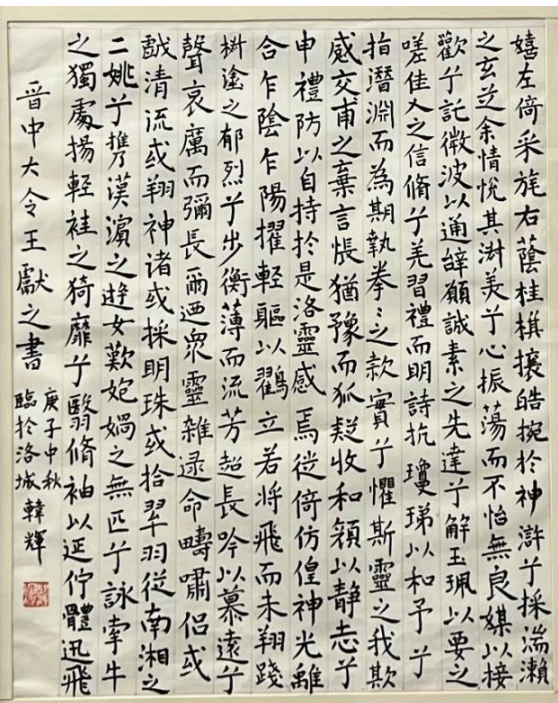 嬉左倚采旄右蔭桂旗攘皓捥於神滸兮採湍瀨
之玄芝余情悅其淑美兮心振蕩而不怡無良媒以接
歡兮託微波以通辭願誠素之先達兮解玉珮以要之
嗟佳人之信脩兮羌習禮而明詩抗瓊珶以和予兮
指潛淵而為期執拳〻之款實兮懼斯靈之我欺
感交甫之棄言悵猶豫而狐疑收和顏以静志兮
申禮防以自持於是洛靈感焉徙倚仿偟神光離
合乍陰乍陽擢輕軀以鶴立若將飛而未翔踐
椒塗之郁烈兮步衡薄而流芳超長吟以慕遠兮
聲哀厲而彌長爾迺眾靈雜遝命疇嘯侶或
戲清流或翔神渚或採明珠或拾翠羽從南湘之
二姚兮攜漢濱之遊女歎匏媧之無匹兮詠牽牛
之獨處揚輕袿之猗靡兮翳脩袖以延佇體迅飛
晉中大令王獻之書
庚子中秋
臨於洛城韓輝